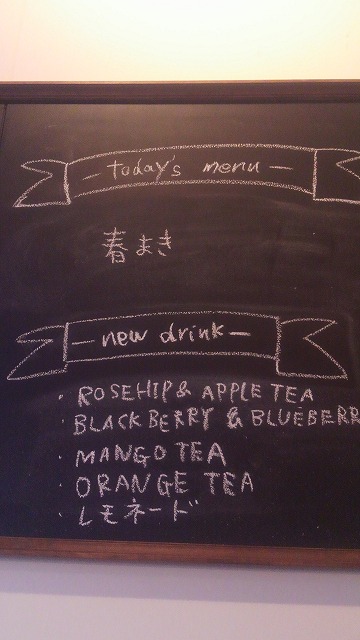 - today's menu -
春まき
- new drink -
· ROSEHIP & APPLE TEA
· BLACKBERRY & BLUEBERR
· MANGO TEA
· ORANGE TEA
· レモネード